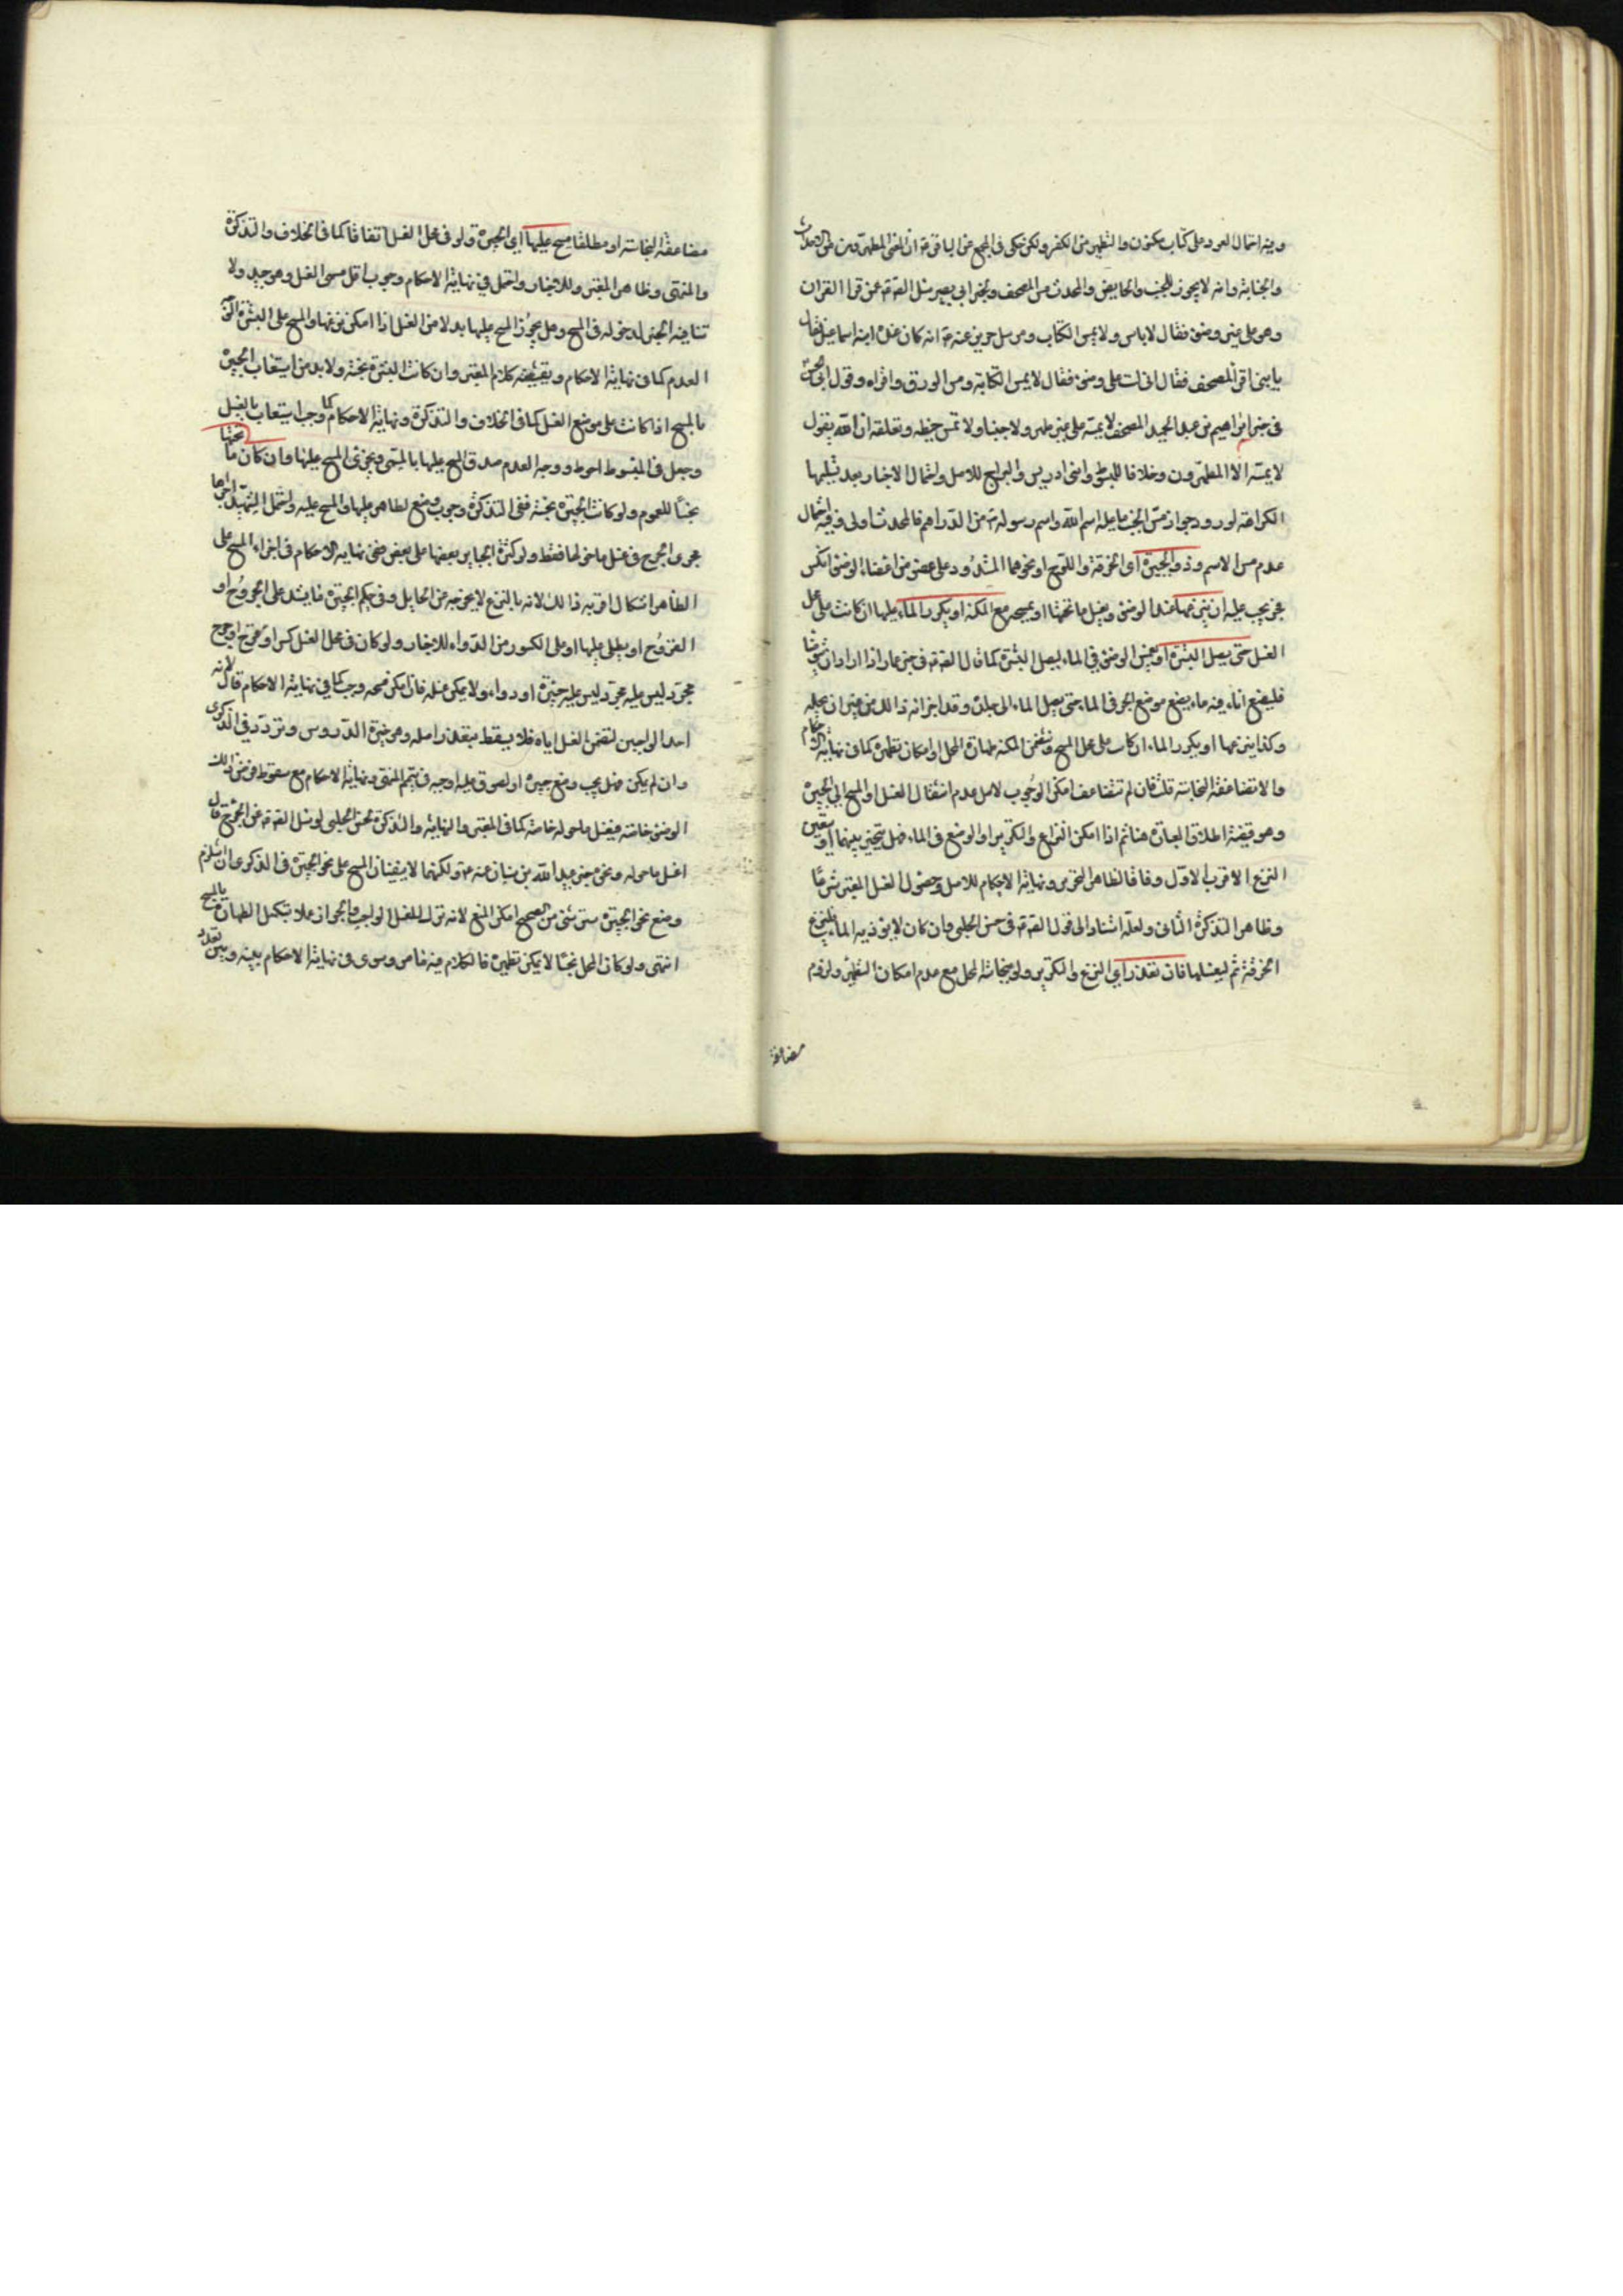 وفيه احتمال العود على كتاب مكنون والتطهير من الكفر ولكن حكى في المجمع عن الباقر ع ان المعنى المطهرون من الاحداث
والجنابة وانه لا يجوز للجنب والحايض والمحدث مس المصحف ولخبر ابي بصير سئل الصادق ع عمن قرا القران
وهو على غير وضوء فقال لا باس ولا يمس الكتاب ومرسل حريز عنه ع انه كان عنده ابنه اسماعيل فقال
يا بنى اقرأ المصحف فقال انى لست على وضوء فقال لا تمس الكتابة ومس الورق واقراه وقول ابي الحسن ع
في خبر ابراهيم بن عبد الحميد المصحف لا تمسه على غير طهر ولا جنبا ولا تمس خيطه ولا تعلقه ان الله يقول
لا يمسه الا المطهرون وخلافا للمبسوط وابنى ادريس والبراج للاصل واحتمال الاخبار بعد تسليمها
الكراهة لورود جواز مس الجنب ما عليه اسم الله واسم رسوله ص من الدراهم فالمحدث اولى وفيه احتمال
عدم مس الاسم وذو الجبيرة اى الخرقة او اللوح او نحوهما المشدود على عضو من اعضاء الوضوء انكسر
يجب عليه ان ينزعها عند الوضوء ويغسل ما تحتها او يمسحه مع المكنة او يكرر الماء عليها ان كانت على محل
الغسل حتى يصل البشرة او يغمس الوضوء في الماء ليصل البشرة كما قال الصادق ع في خبر عمار اذا اراد ان يتوضأ
فليضع اناء فيه ماء يضع موضع الجبر في الماء حتى يصل الماء الى جلده وقد اجزائه ذلك من غير ان يحله
وكذا ينزعها او يكرر الماء ان كانت على محل المسح وتضمن المكنة طهارة المحل او امكان تطهيره كما في نهاية الاحكام
والا تضاعفت النجاسة قلت فان لم تتضاعف امكن الوجوب لاصل عدم انتقال الغسل او المسح الى الجبيرة
وهو قضية اطلاق العبارة هنا ثم اذا امكن النزاع والتكرير او الوضع في الماء فهل يتخير بينهما او يتعين
النزع الاقرب الاول وفاقا لظاهر التحرير ونهاية الاحكام للاصل وحصول الغسل المعتبر شرعا
وظاهر التذكرة الثاني ولعله استنادا الى قول الصادق ع في حسن الحلبي وان كان لا يؤذيه الماء فلينزع
الخرقة ثم ليغسلها فان تعذر اي النزع والتكرير ولو بنجاسة المحل مع عدم امكان التطهير ولزوم
مضاعفة
مضاعفة النجاسة او مطلقا مسح عليها اي الجبيرة ولو في محل الغسل اتفاقا كما في الخلاف والتذكرة
والمنتهى وظاهر المعتبر وللاخبار واحتمل في نهاية الاحكام وجوب اقل مسمى الغسل وهو جيد ولا
تنافيه الخبر لدخوله في المسح وهل يجوز المسح عليها بدلا من الغسل اذا امكن نزعها والمسح على البشرة
العدم كما في نهاية الاحكام ويقتضيه كلام المعتبر وان كانت البشرة نجسة ولا بد من استيعاب الجبيرة
بالمسح اذا كانت على موضع الغسل كما في الخلاف والتذكرة ونهاية الاحكام كما وجب استيعاب بالغسل
وجعل في المبسوط احوط ووجه العدم صدق المسح عليها بالمسمى ويجزئ المسح عليها وان كان ما تحتها
نجسا للعموم ولو كانت الجبيرة نجسة ففي التذكرة وجوب وضع طاهر عليها والمسح عليه واحتمل الشهيد اجراها
مجرى الجرح في غسل ما حولها فقط ولو كثرت الجباير بعضها على بعض ففي نهاية الاحكام في اجزاء المسح على
الظاهر اشكال اقربه ذلك لانه بالنزع لا يخرج عن الحايل وفي حكم الجبيرة ما يشد على الجروح او
القروح او يطلى عليها او على الكسور من الدواء للاخبار ولو كان في محل الغسل كسر او قرح او جرح
مجرد ليس عليه جبيرة او دواء ولا يمكن غسله فان امكن مسحه وجب كما في نهاية الاحكام قال لانه
احد الواجبين لتضمن الغسل اياه فلا يسقط بتعذر اصله وهو خيرة الدروس وتردد في الذكرى
وان لم يمكن فهل يجب وضع جبيرة او لصوق عليه اوجه في تيمم المنتهى ونهاية الاحكام مع سقوط فرض ذلك
الوضوء خاصة فيغسل ما حوله خاصة كما في المعتبر والنهاية والتذكرة لحسن الحلبي لو سئل الصادق ع عن الجرح قال
اغسل ما حوله ونحوه خبر عبد الله بن سنان عنه ع ولكنهما لا ينفيان المسح على نحو الجبيرة في الذكرى ان استلزم
وضع نحو الجبيرة ستر شئ من الصحيح امكن المنع لانه ترك للغسل الواجب والجواز عملا بتكميل الطهارة بالمسح
انتهى ولو كان المحل نجسا لا يمكن تطهيره فالكلام فيه ما مر وسوى في نهاية الاحكام بينه وبين تعذر